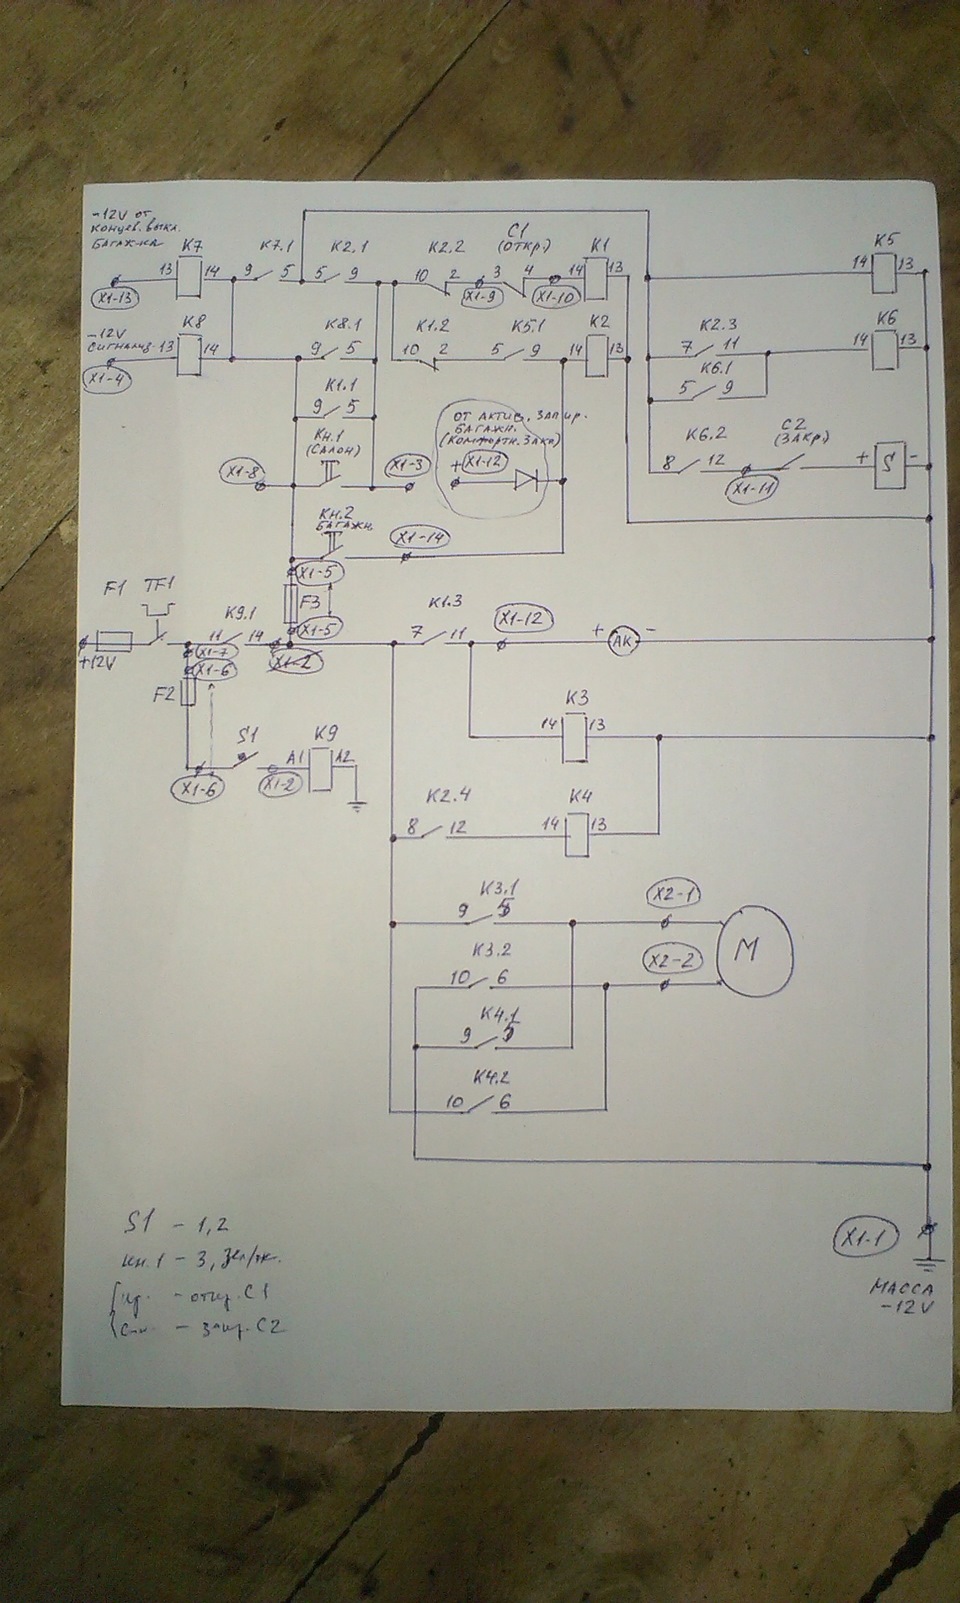 -12V от
концев. выкл.
багажка
K7
K7.1
K2.1
K2.2
C1
(откр.)
K1
K5
13
14
9
5
5
9
10
2
3
4
14
13
14
13
X1-13
X1-9
X1-10
-12V
сигнализ.
K8
K8.1
K1.2
K5.1
K2
K2.3
K6
13
14
9
5
10
2
5
9
14
13
7
11
14
13
X1-4
K6.1
5
9
K1.1
9
5
Кн.1
(салон)
X1-8
X1-3
от актив. запир.
багажн.
(комфортн. закр)
+
X1-12
K6.2
C2
(закр.)
8
12
+
S
-
X1-11
Кн.2
багажн.
X1-14
X1-5
F3
X1-5
F1
TF1
K9.1
11
14
+12V
X1-7
X1-6
X1-2
K1.3
7
11
X1-12
+
АК
-
F2
S1
K9
A1
A2
X1-6
X1-2
K3
14
13
K2.4
8
12
K4
14
13
K3.1
9
5
X2-1
K3.2
10
6
X2-2
M
K4.1
9
5
K4.2
10
6
S1 - 1,2
кн.1 - 3, зел/ж.
- откр. C1
- закр. C2
X1-1
МАССА
-12V